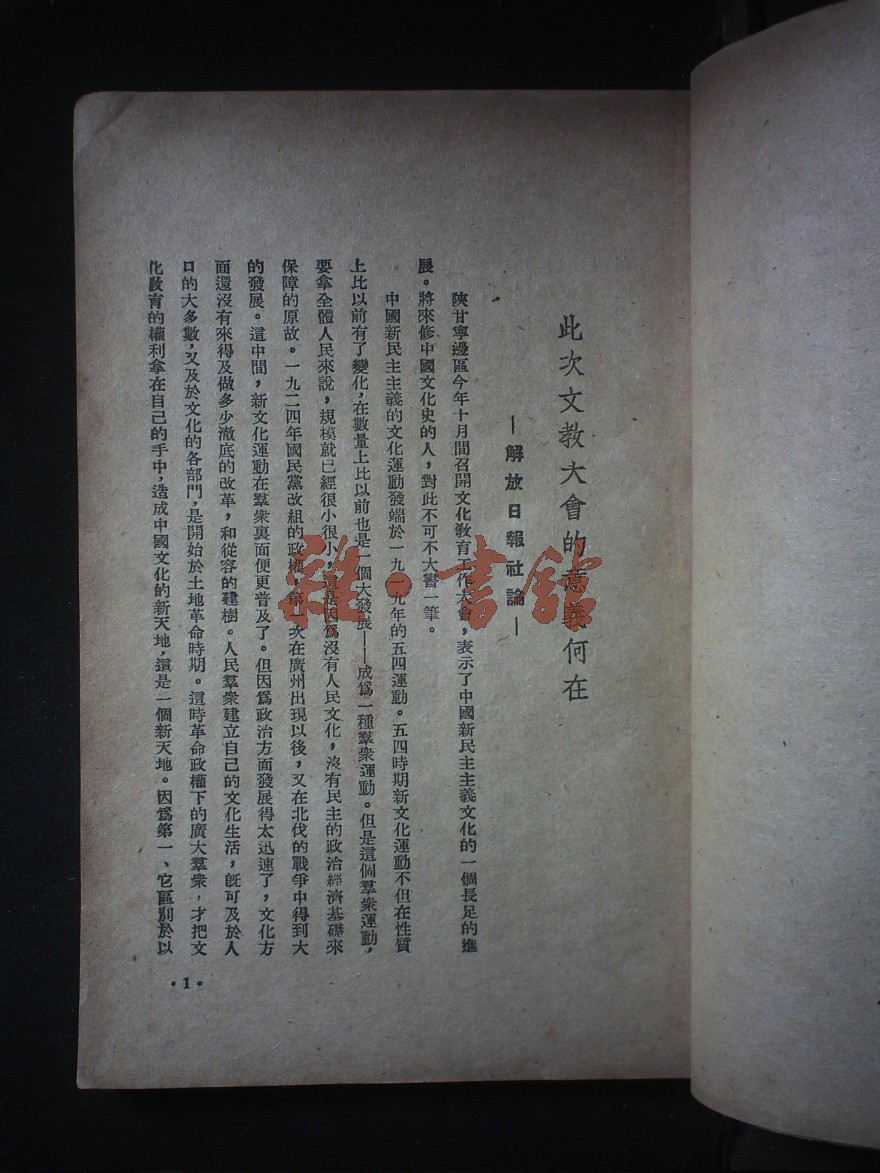 此次文教大會的意義何在
—解放日報社論—
陝甘寧邊區今年十月間召開文化教育工作大會，表示了中國新民主主義文化的一個長足的進
展。將來修中國文化史的人，對此不可不大書一筆。
中國新民主主義的文化運動發端於一九一九年的五四運動。五四時期新文化運動不但在性質
上比以前有了變化，在數量上比以前也是一個大發展——成爲一種羣衆運動。但是這個羣衆運動，
要拿全體人民來說，規模就已經很小很小，這是因爲沒有人民文化，沒有民主的政治經濟基礎來
保障的原故。一九二四年國民黨改組的政權，第一次在廣州出現以後，又在北伐的戰爭中得到大
的發展。這中間，新文化運動在羣衆裏面便更普及了。但因爲政治方面發展得太迅速了，文化方
面還沒有來得及做多少澈底的改革，和從容的建樹。人民羣衆建立自己的文化生活，旣可及於人
口的大多數，又及於文化的各部門，是開始於土地革命時期。這時革命政權下的廣大羣衆，才把文
化教育的權利拿在自己的手中，造成中國文化的新天地，這是一個新天地。因爲第一、它區別於以
·1·
雜·書館